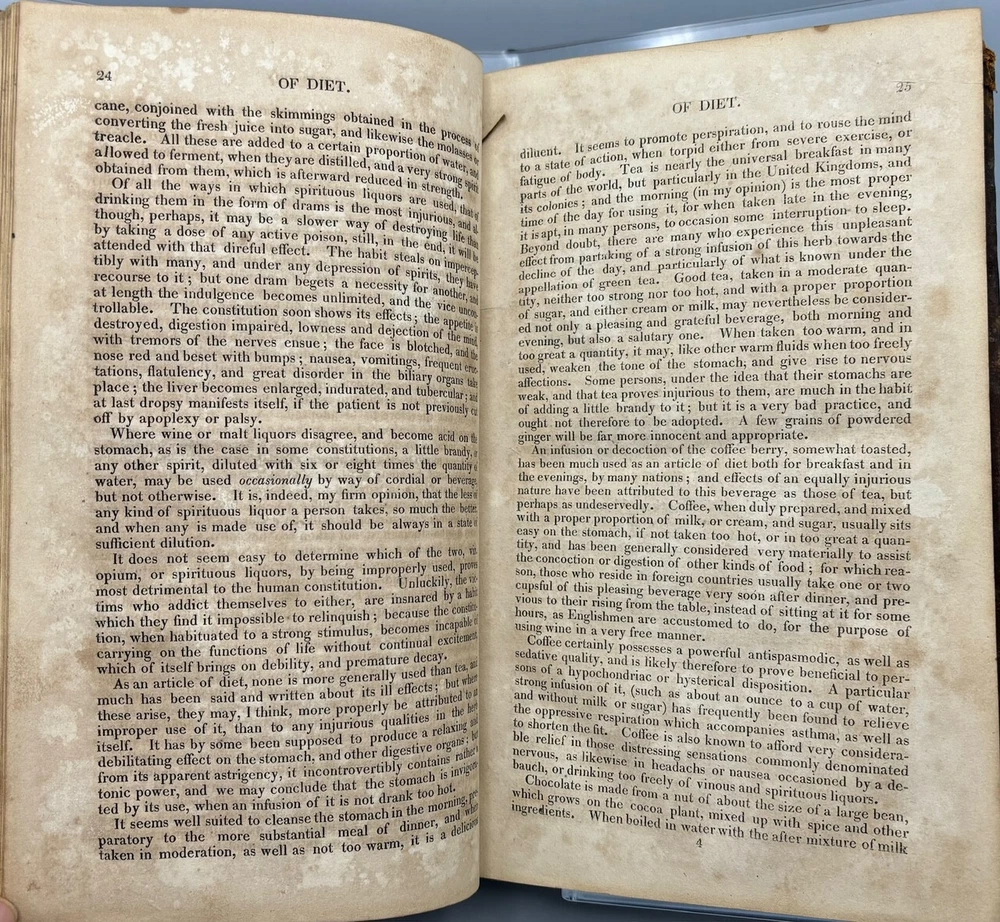 24
OF DIET.
cane, conjoined with the skimmings obtained in the process of
converting the fresh juice into sugar, and likewise the molasses or
treacle. All these are added to a certain proportion of water, and
allowed to ferment, when they are distilled, and a very strong spirit
obtained from them, which is afterward reduced in strength.
Of all the ways in which spirituous liquors are used, that of
drinking them in the form of drams is the most injurious, and al
though, perhaps, it may be a slower way of destroying life than
by taking a dose of any active poison, still, in the end, it will be
attended with that direful effect. The habit steals on impercep-
tibly with many, and under any depression of spirits, they have
recourse to it; but one dram begets a necessity for another, and
at length the indulgence becomes unlimited, and the vice uncon
trollable. The constitution soon shows its effects; the appetite is
destroyed, digestion impaired, lowness and dejection of the mind,
with tremors of the nerves ensue; the face is blotched, and the
nose red and beset with bumps; nausea, vomitings, frequent eruc
tations, flatulency, and great disorder in the biliary organs take
place; the liver becomes enlarged, indurated, and tubercular; and
at last dropsy manifests itself, if the patient is not previously cut
off by apoplexy or palsy.
Where wine or malt liquors disagree, and become acid on the
stomach, as is the case in some constitutions, a little brandy, or
any other spirit, diluted with six or eight times the quantity of
water, may be used occasionally by way of cordial or beverage,
but not otherwise. It is, indeed, my firm opinion, that the less of
any kind of spirituous liquor a person takes, so much the better,
and when any is made use of, it should be always in a state of
sufficient dilution.
It does not seem easy to determine which of the two, viz.
opium, or spirituous liquors, by being improperly used, proves
most detrimental to the human constitution. Unluckily, the vic-
tims who addict themselves to either, are insnared by a habit
which they find it impossible to relinquish; because the constitu-
tion, when habituated to a strong stimulus, becomes incapable of
carrying on the functions of life without continual excitement,
which of itself brings on debility, and premature decay.
As an article of diet, none is more generally used than tea, and
much has been said and written about its ill effects; but where
these arise, they may, I think, more properly be attributed to an
improper use of it, than to any injurious qualities in the herb
itself. It has by some been supposed to produce a relaxing and
debilitating effect on the stomach, and other digestive organs; but
from its apparent astrigency, it incontrovertibly contains rather a
tonic power, and we may conclude that the stomach is invigora-
ted by its use, when an infusion of it is not drank too hot.
It seems well suited to cleanse the stomach in the morning, pre-
paratory to the more substantial meal of dinner, and when
taken in moderation, as well as not too warm, it is a delicious
25
OF DIET.
diluent. It seems to promote perspiration, and to rouse the mind
to a state of action, when torpid either from severe exercise, or
fatigue of body. Tea is nearly the universal breakfast in many
parts of the world, but particularly in the United Kingdoms, and
its colonies; and the morning (in my opinion) is the most proper
time of the day for using it, for when taken late in the evening,
it is apt, in many persons, to occasion some interruption to sleep.
Beyond doubt, there are many who experience this unpleasant
effect from partaking of a strong infusion of this herb towards the
decline of the day, and particularly of what is known under the
appellation of green tea. Good tea, taken in a moderate quan-
tity, neither too strong nor too hot, and with a proper proportion
of sugar, and either cream or milk, may nevertheless be consider-
ed not only a pleasing and grateful beverage, both morning and
evening, but also a salutary one. When taken too warm, and in
too great a quantity, it may, like other warm fluids when too freely
used, weaken the tone of the stomach, and give rise to nervous
affections. Some persons, under the idea that their stomachs are
weak, and that tea proves injurious to them, are much in the habit
of adding a little brandy to it; but it is a very bad practice, and
ought not therefore to be adopted. A few grains of powdered
ginger will be far more innocent and appropriate.
An infusion or decoction of the coffee berry, somewhat toasted,
has been much used as an article of diet both for breakfast and in
the evenings, by many nations; and effects of an equally injurious
nature have been attributed to this beverage as those of tea, but
perhaps as undeservedly. Coffee, when duly prepared, and mixed
with a proper proportion of milk, or cream, and sugar, usually sits
easy on the stomach, if not taken too hot, or in too great a quan-
tity, and has been generally considered very materially to assist
the concoction or digestion of other kinds of food; for which rea-
son, those who reside in foreign countries usually take one or two
cupsful of this pleasing beverage very soon after dinner, and pre-
vious to their rising from the table, instead of sitting at it for some
hours, as Englishmen are accustomed to do, for the purpose of
using wine in a very free manner.
Coffee certainly possesses a powerful antispasmodic, as well as
sedative quality, and is likely therefore to prove beneficial to per-
sons of a hypochondriac or hysterical disposition. A particular
strong infusion of it, (such as about an ounce to a cup of water,
and without milk or sugar) has frequently been found to relieve
the oppressive respiration which accompanies asthma, as well as
to shorten the fit. Coffee is also known to afford very considera-
ble relief in those distressing sensations commonly denominated
nervous, as likewise in headachs or nausea occasioned by a de-
bauch, or drinking too freely of vinous and spirituous liquors.
Chocolate is made from a nut of about the size of a large bean,
which grows on the cocoa plant, mixed up with spice and other
ingredients. When boiled in water with the after mixture of milk
4